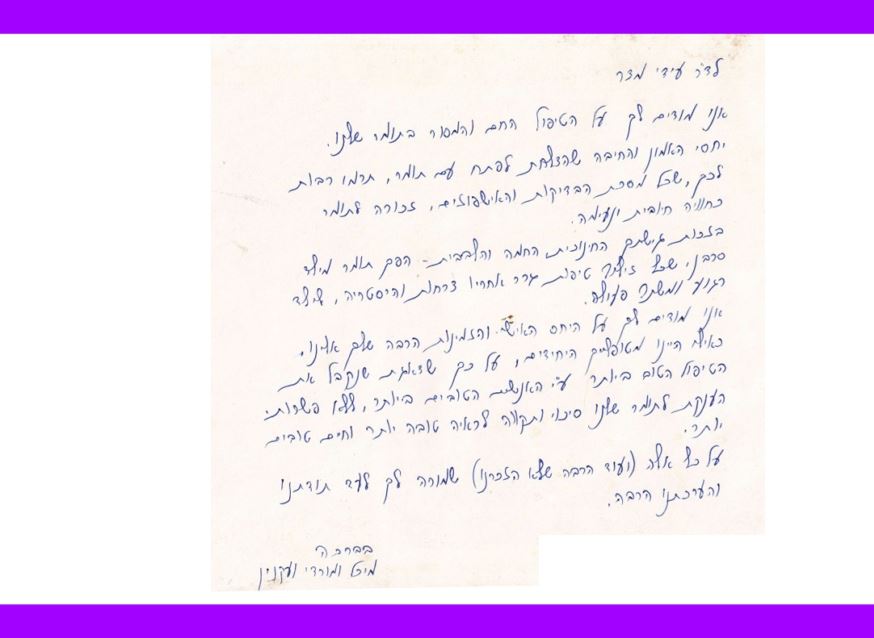 לד"ר עידי מצר
אנו מודים לך על הטיפול החם והמסור בתומר שלנו.
יחסי האמון והחיבה שהצלחת לפתח עם תומר, תרמו רבות
לכך, שכל מסכת הבדיקות והאישפוזים, זכורה לתומר
כחוויה חיובית ונעימה.
בזכות גישתך החינוכית, החמה והלבבית - הפך תומר מילד
סרבן, שכל זילוף טיפות גרר אחריו צרחות והיסטריה, לילד
רגוע ומשתף פעולה.
אנו מודים לך על היחס האישי והזמינות הרבה שלך אלינו,
כאילו היינו מטופליך היחידים, על כך שדאגת שנקבל את
הטיפול הטוב ביותר ע"י האנשים הטובים ביותר, ללא פשרות.
הענקת לתומר שלנו סיכוי ותקווה לראיה טובה יותר וחיים טובים
יותר.
על כל אלה (ועוד הרבה שלא הזכרנו) שמורה לך לעד תודתנו
והערכתנו הרבה.
בברכה
מיטל ומורדי ועקנין